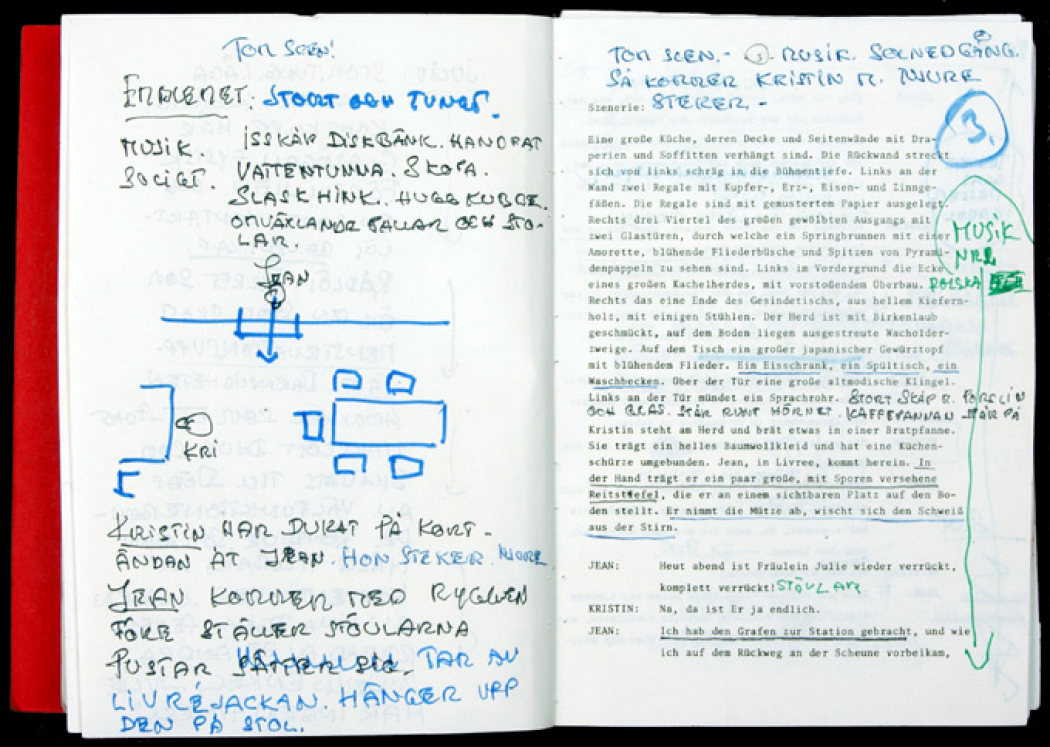 TOM SCEN!
EMBLEMET: STORT OCH TUNGT.
MUSIK. ISSKÅP DISKBÄNK. HANDFAT
VATTENTUNNA. SKOPA.
SLASKHINK. HUGGKUBBE.
OMVÄLANDE PALLAR OCH STO-
LAR.
JEAN
KRI
KRISTIN HAR DUKAT PÅ KORT-
ÄNDAN ÅT JEAN. HON STEKER NJURE
JEAN KOMMER MED RYGGEN
FÖRE STÄLLER STÖVLARNA
PUSTAR SÄTTER SIG. TAR AV
LIVRÉJACKAN. HÄNGER UPP
DEN PÅ STOL.
TOM SCEN.- MUSIK. SOLNEDGÅNG.
SÅ KOMMER KRISTIN M. NJURE
STEKER.-
3.
Szenerie:
Eine große Küche, deren Decke und Seitenwände mit Dra-
perien und Soffitten verhängt sind. Die Rückwand streckt
sich von links schräg in die Bühnentiefe. Links an der
Wand zwei Regale mit Kupfer-, Erz-, Eisen- und Zinnge-
fäßen. Die Regale sind mit gemustertem Papier ausgelegt.
Rechts drei Viertel des großen gewölbten Ausgangs mit
zwei Glastüren, durch welche ein Springbrunnen mit einer
Amorette, blühende Fliederbüsche und Spitzen von Pyrami-
denpappeln zu sehen sind. Links im Vordergrund die Ecke
eines großen Kachelherdes, mit vorstoßendem Überbau.
Rechts das eine Ende des Gesindetischs, aus hellem Kiefern-
holz, mit einigen Stühlen. Der Herd ist mit Birkenlaub
geschmückt, auf dem Boden liegen ausgestreute Wacholder-
zweige. Auf dem Tisch ein großer japanischer Gewürztopf
mit blühendem Flieder. Ein Eisschrank, ein Spültisch, ein
Waschbecken. Über der Tür eine große altmodische Klingel.
Links an der Tür mündet ein Sprachrohr. STORT SKÅP M. PORSLIN
OCH GLAS. STÅR RUNT HÖRNET. KAFFEPANNAN STÅR PÅ
Kristin steht am Herd und brät etwas in einer Bratpfanne.
Sie trägt ein helles Baumwollkleid und hat eine Küchen-
schürze umgebunden. Jean, in Livree, kommt herein. In
der Hand trägt er ein paar große, mit Sporen versehene
Reitstiefel, die er an einem sichtbaren Platz auf den Bo-
den stellt. Er nimmt die Mütze ab, wischt sich den Schweiß
aus der Stirn.
MUSIK
NR 1
POLSKA
JEAN: Heut abend ist Fräulein Julie wieder verrückt,
komplett verrückt! STÖVLAR
KRISTIN: Na, da ist Er ja endlich.
JEAN: Ich hab den Grafen zur Station gebracht, und wie
ich auf dem Rückweg an der Scheune vorbeikam,